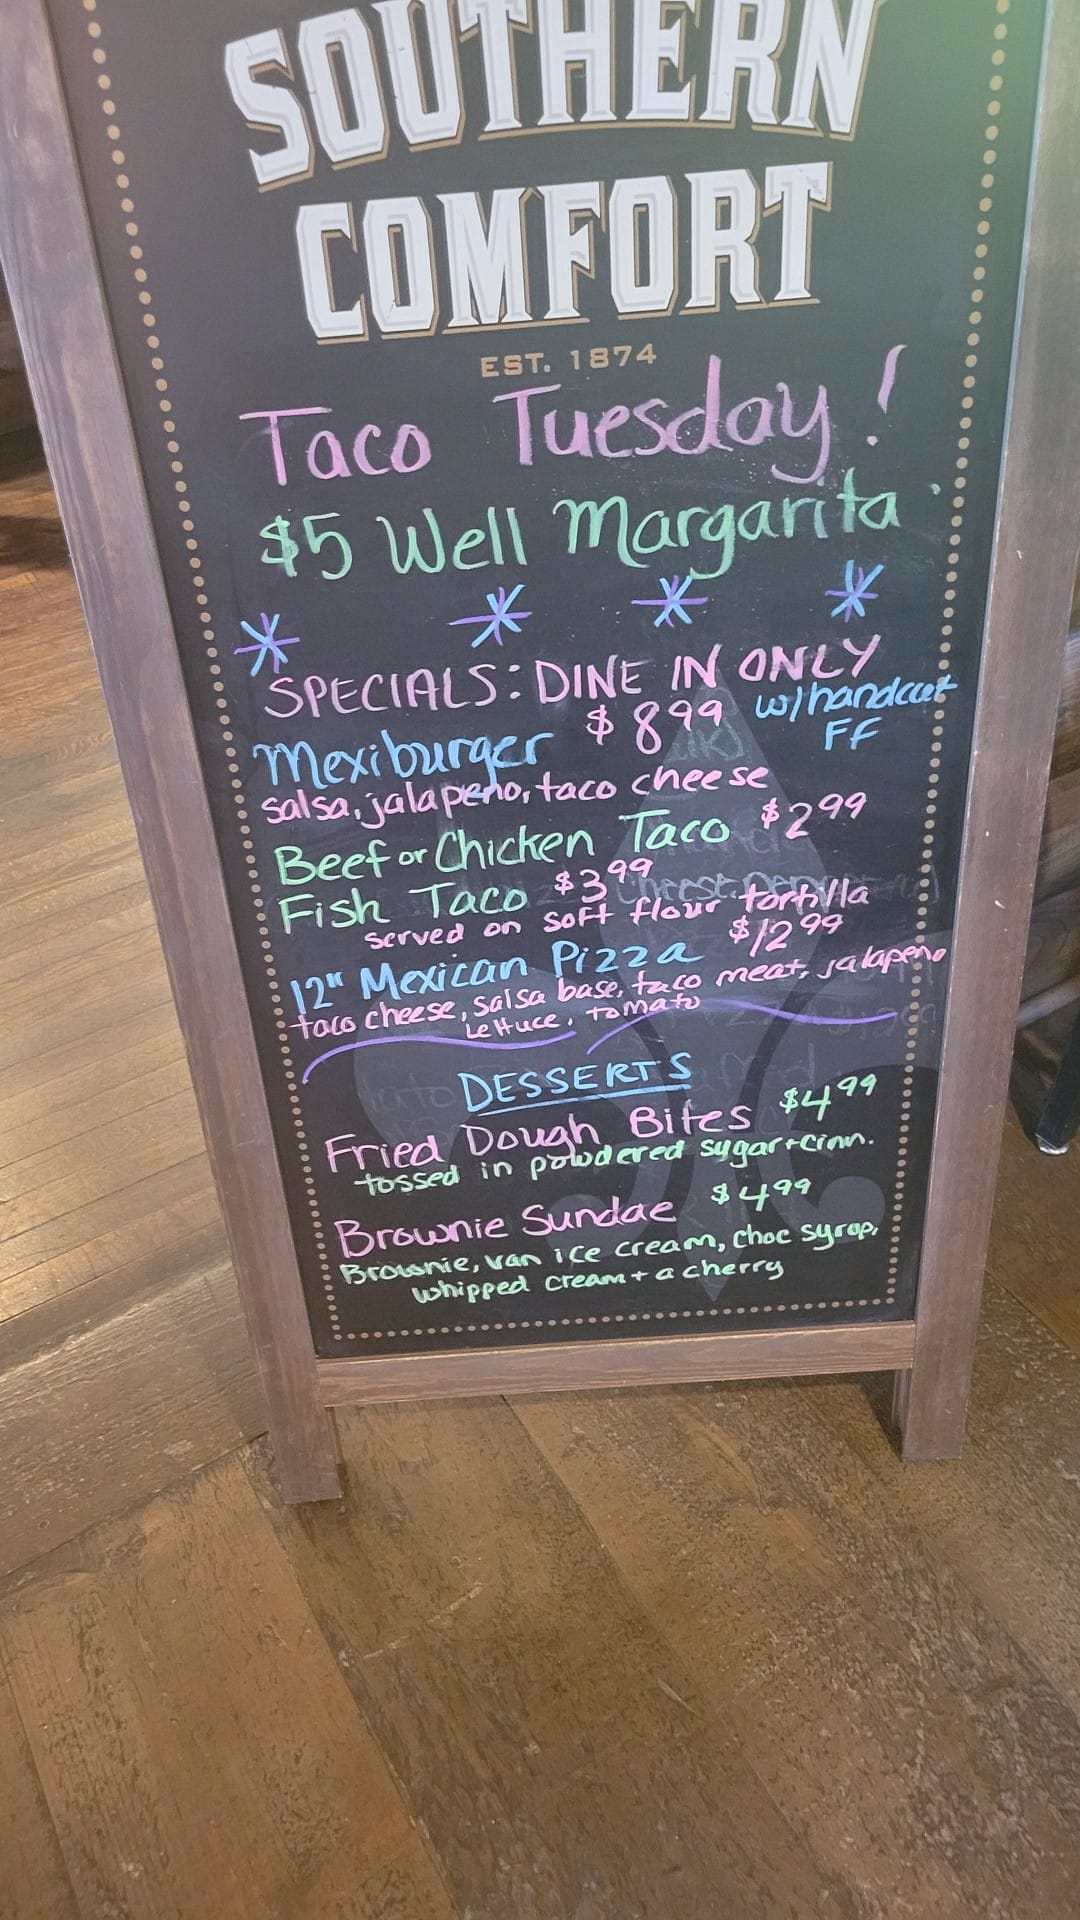 SOUTHERN
COMFORT
EST. 1874
Taco Tuesday!
$5 Well Margarita
SPECIALS: DINE IN ONLY
Mexiburger $8.99 w/handcut
FF
salsa, jalapeno, taco cheese
Beef or Chicken Taco $2.99
Fish Taco $3.99
served on soft flour tortilla
12" Mexican Pizza $12.99
taco cheese, salsa base, taco meat, jalapeno
Lettuce, tomato
DESSERTS
Fried Dough Bites $4.99
tossed in powdered sugar + cinn.
Brownie Sundae $4.99
Brownie, van ice cream, choc syrop,
whipped cream + a cherry